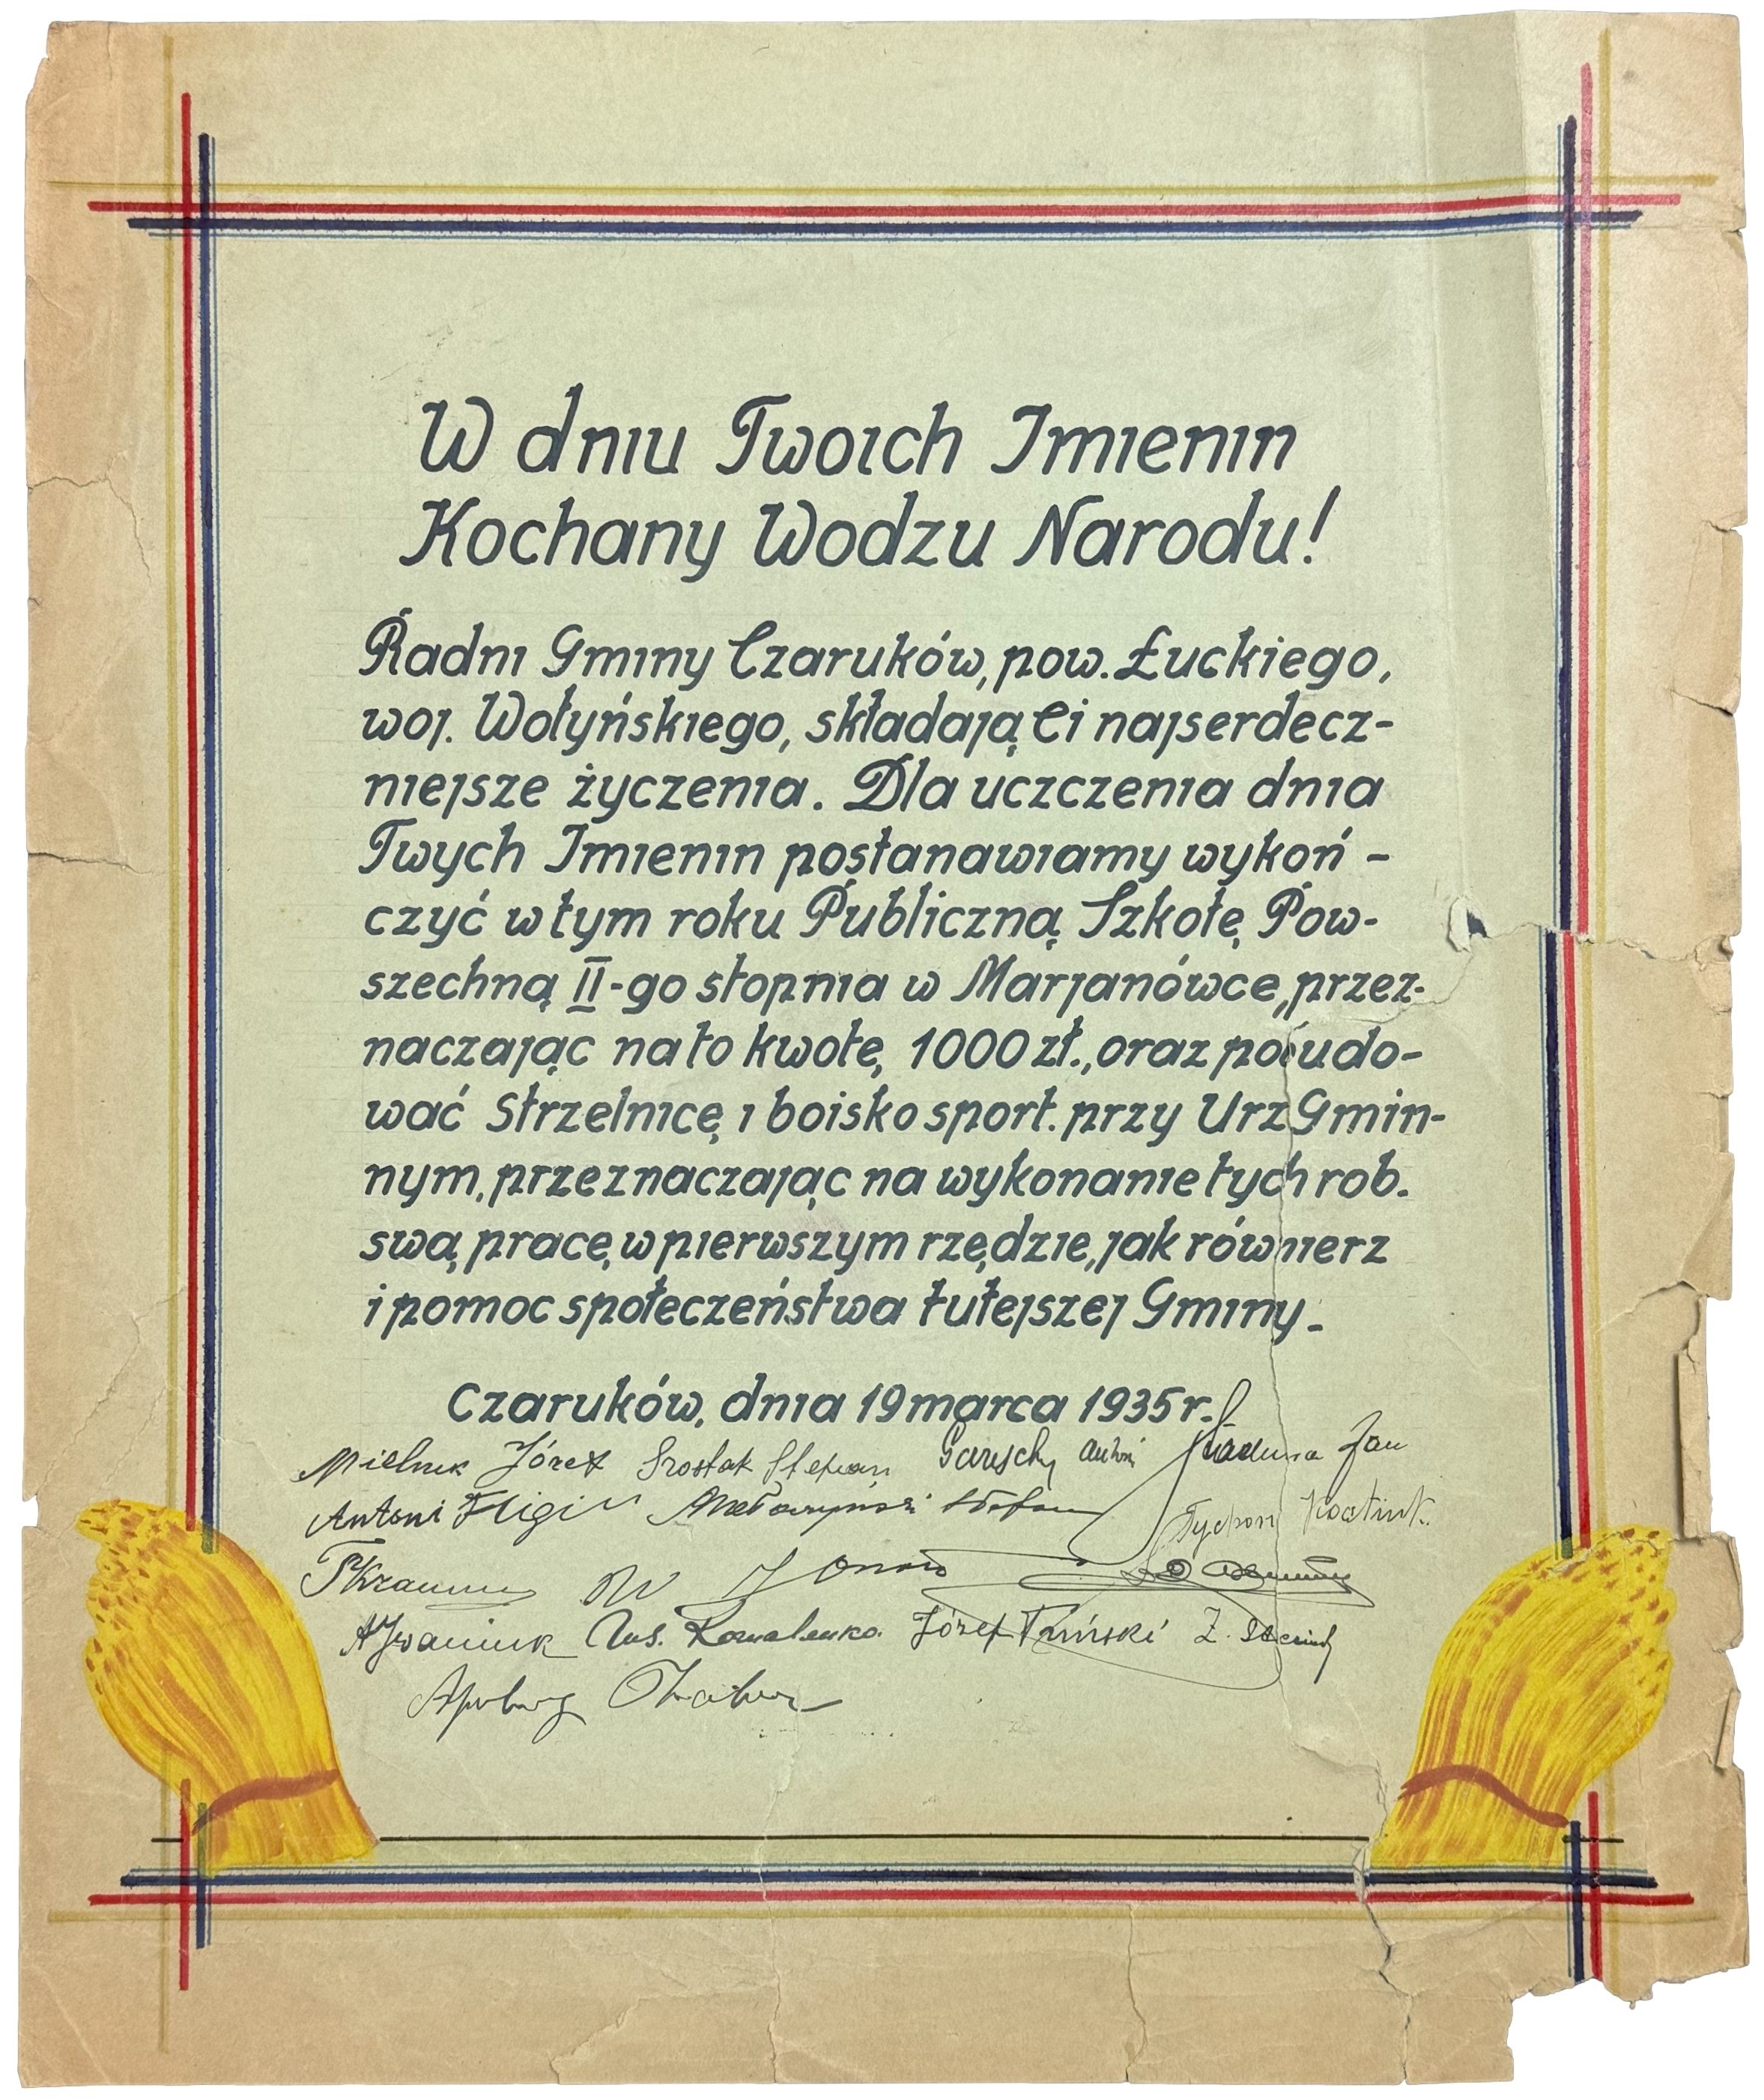 W dniu Twoich Imienin
Kochany Wodzu Narodu!
Radni Gminy Czaruków, pow. Łuckiego,
woj. Wołyńskiego, składają Ci najserdecz-
niejsze życzenia. Dla uczczenia dnia
Twych Imienin postanawiamy wykoń-
czyć w tym roku Publiczną Szkołę Pow-
szechną II-go stopnia w Marjanówce, przez-
naczając na to kwotę 1000 zł., oraz pobudo-
wać Strzelnicę i boisko sport. przy Urz Gmin-
nym, przeznaczając na wykonanie tych rob.
swą pracę w pierwszym rzędzie, jak równierz
i pomoc społeczeństwa tutejszej Gminy.
Czaruków, dnia 19 marca 1935 r.
Mielnik Józef Szostak Stepan Antoni Jan
Antoni Stefan Tychon
A Iwaniuk Kowalenko Józef